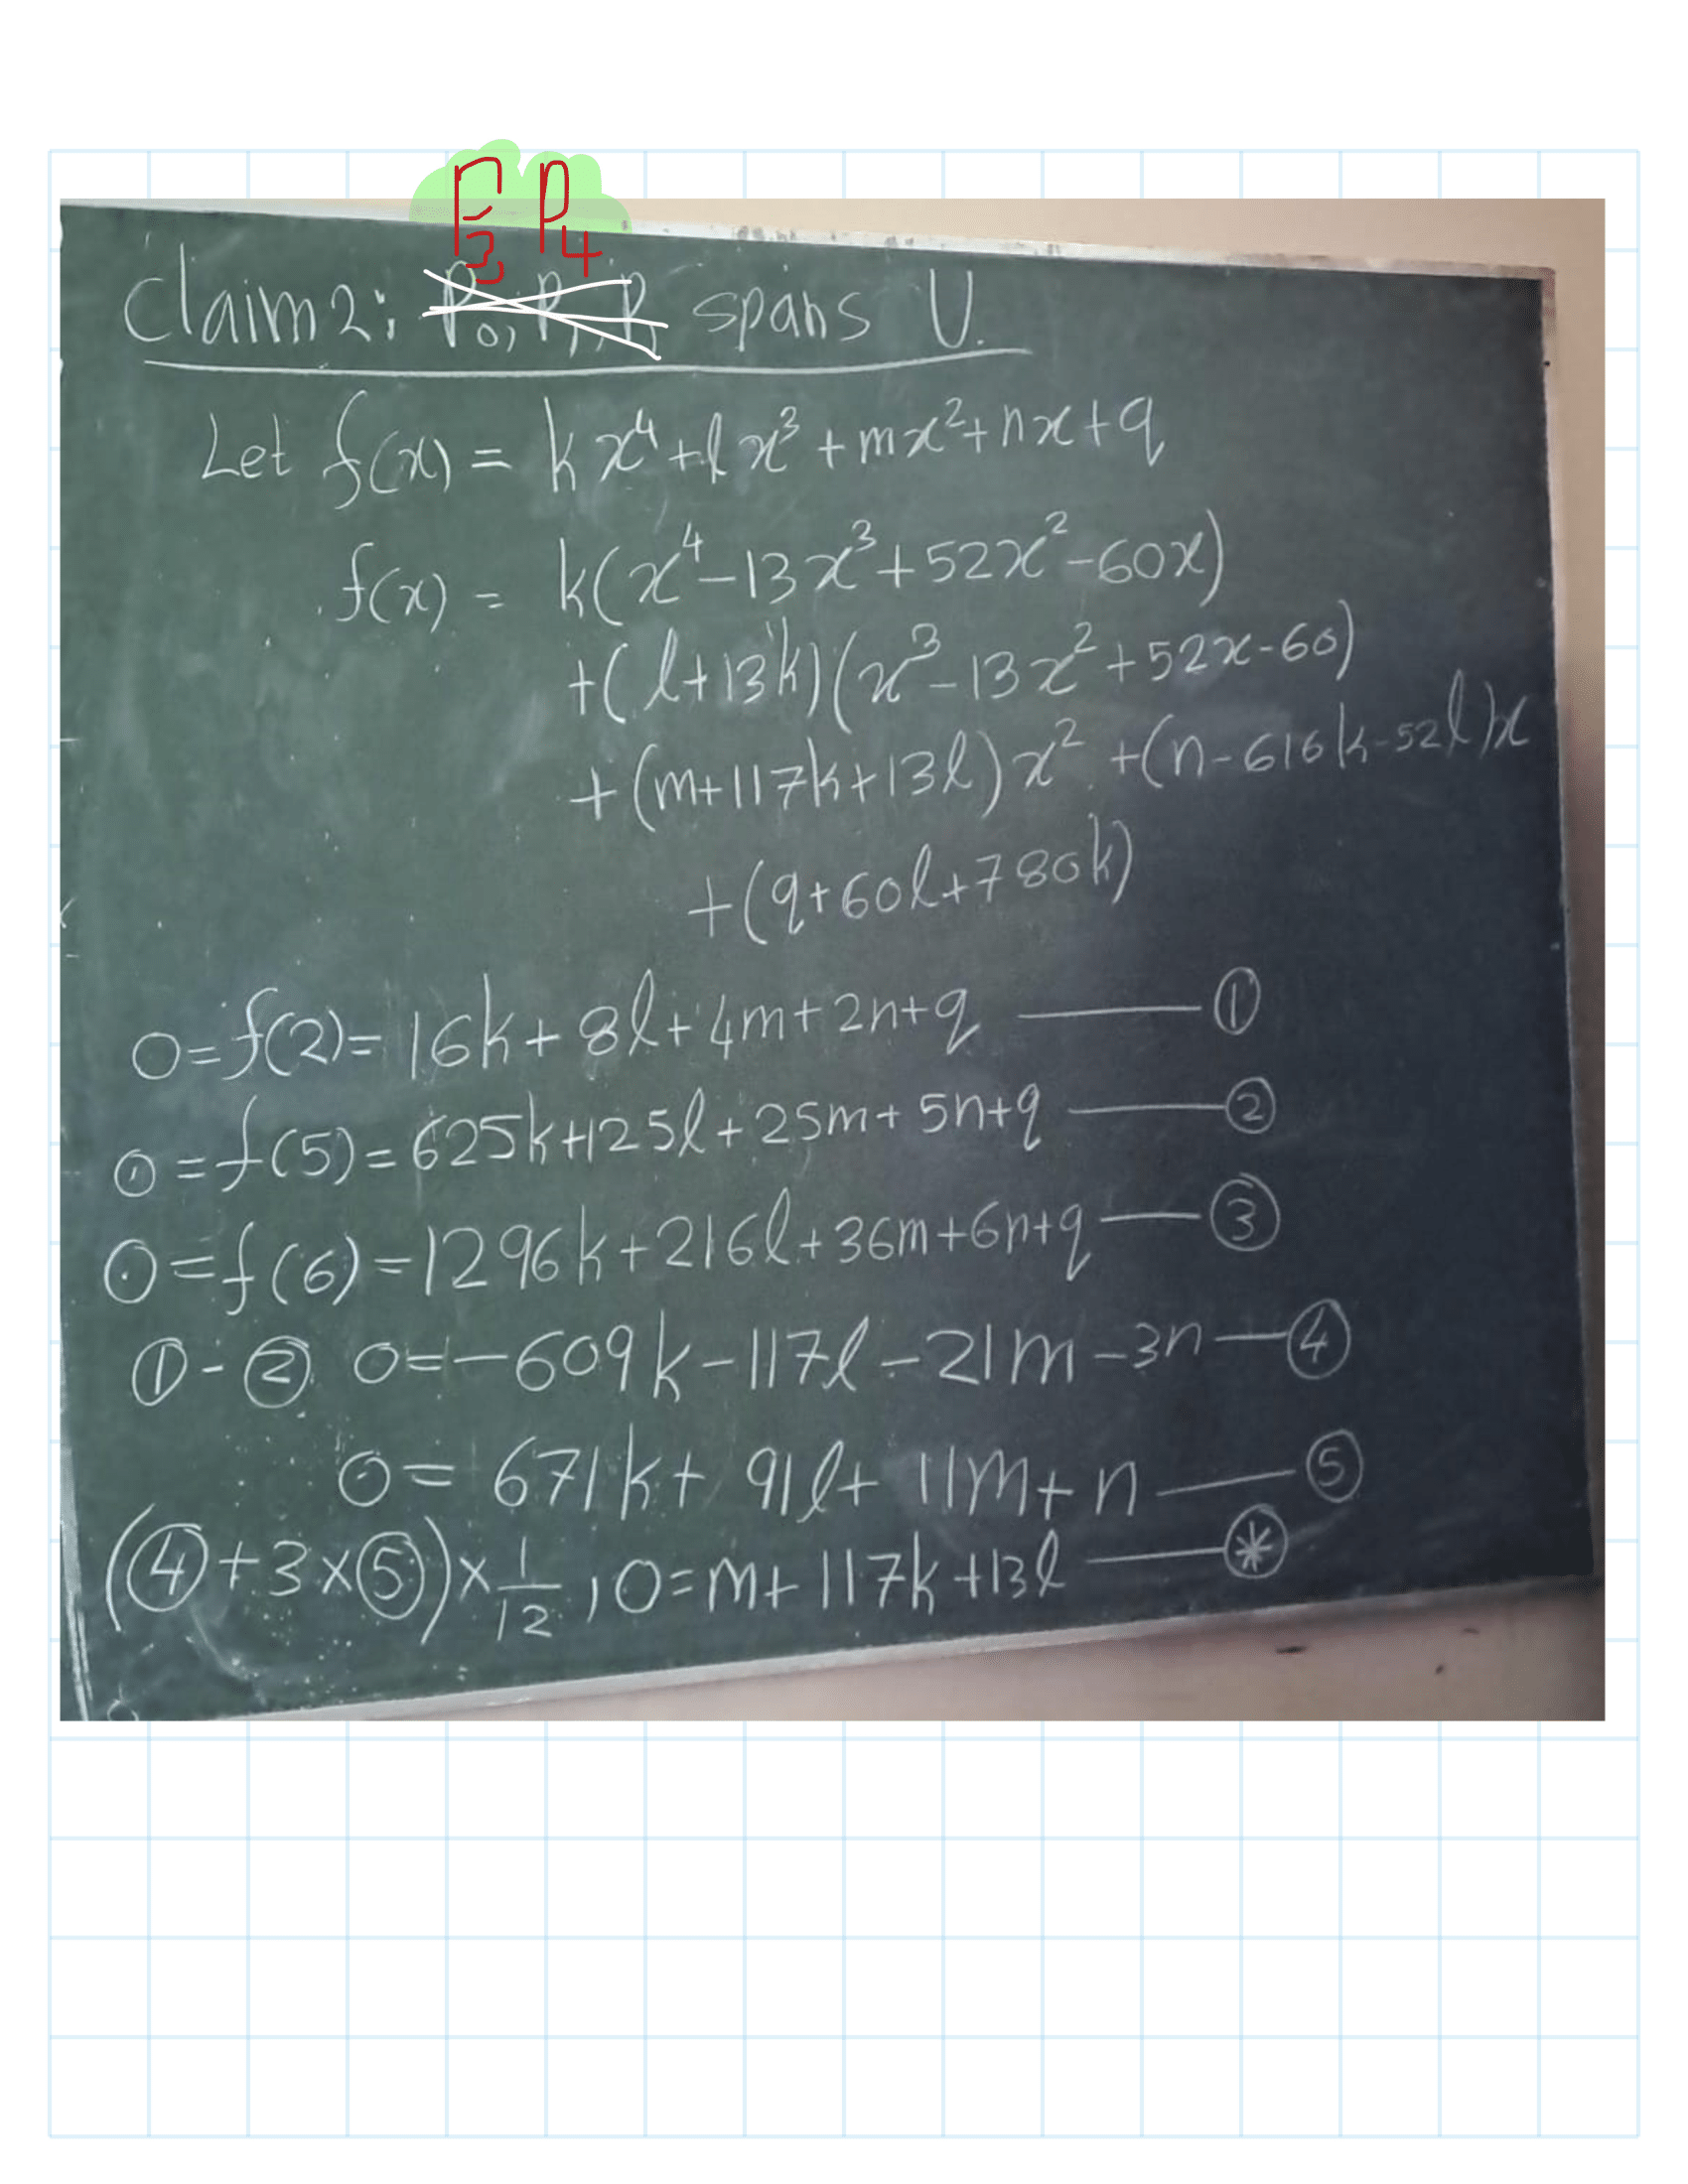 P₃ P₄
Claim 2: P₀, P₁, P₁ spans U.
Let f(x) = kx⁴+lx³+mx²+nx+q
f(x) = k(x⁴-13x³+52x²-60x)
+(l+13k)(x³-13x²+52x-60)
+(m+117k+13l)x² +(n-616k-52l)x
+(q+60l+780k)
0=f(2)=16k+8l+4m+2n+q —— ①
0=f(5)=625k+125l+25m+5n+q —— ②
0=f(6)=1296k+216l+36m+6n+q — ③
①-② 0=-609k-117l-21m-3n — ④
0= 671k+ 91l+ 11m+n —— ⑤
(④+3×⑤)×1/12, 0=m+117k+13l —— ⊛